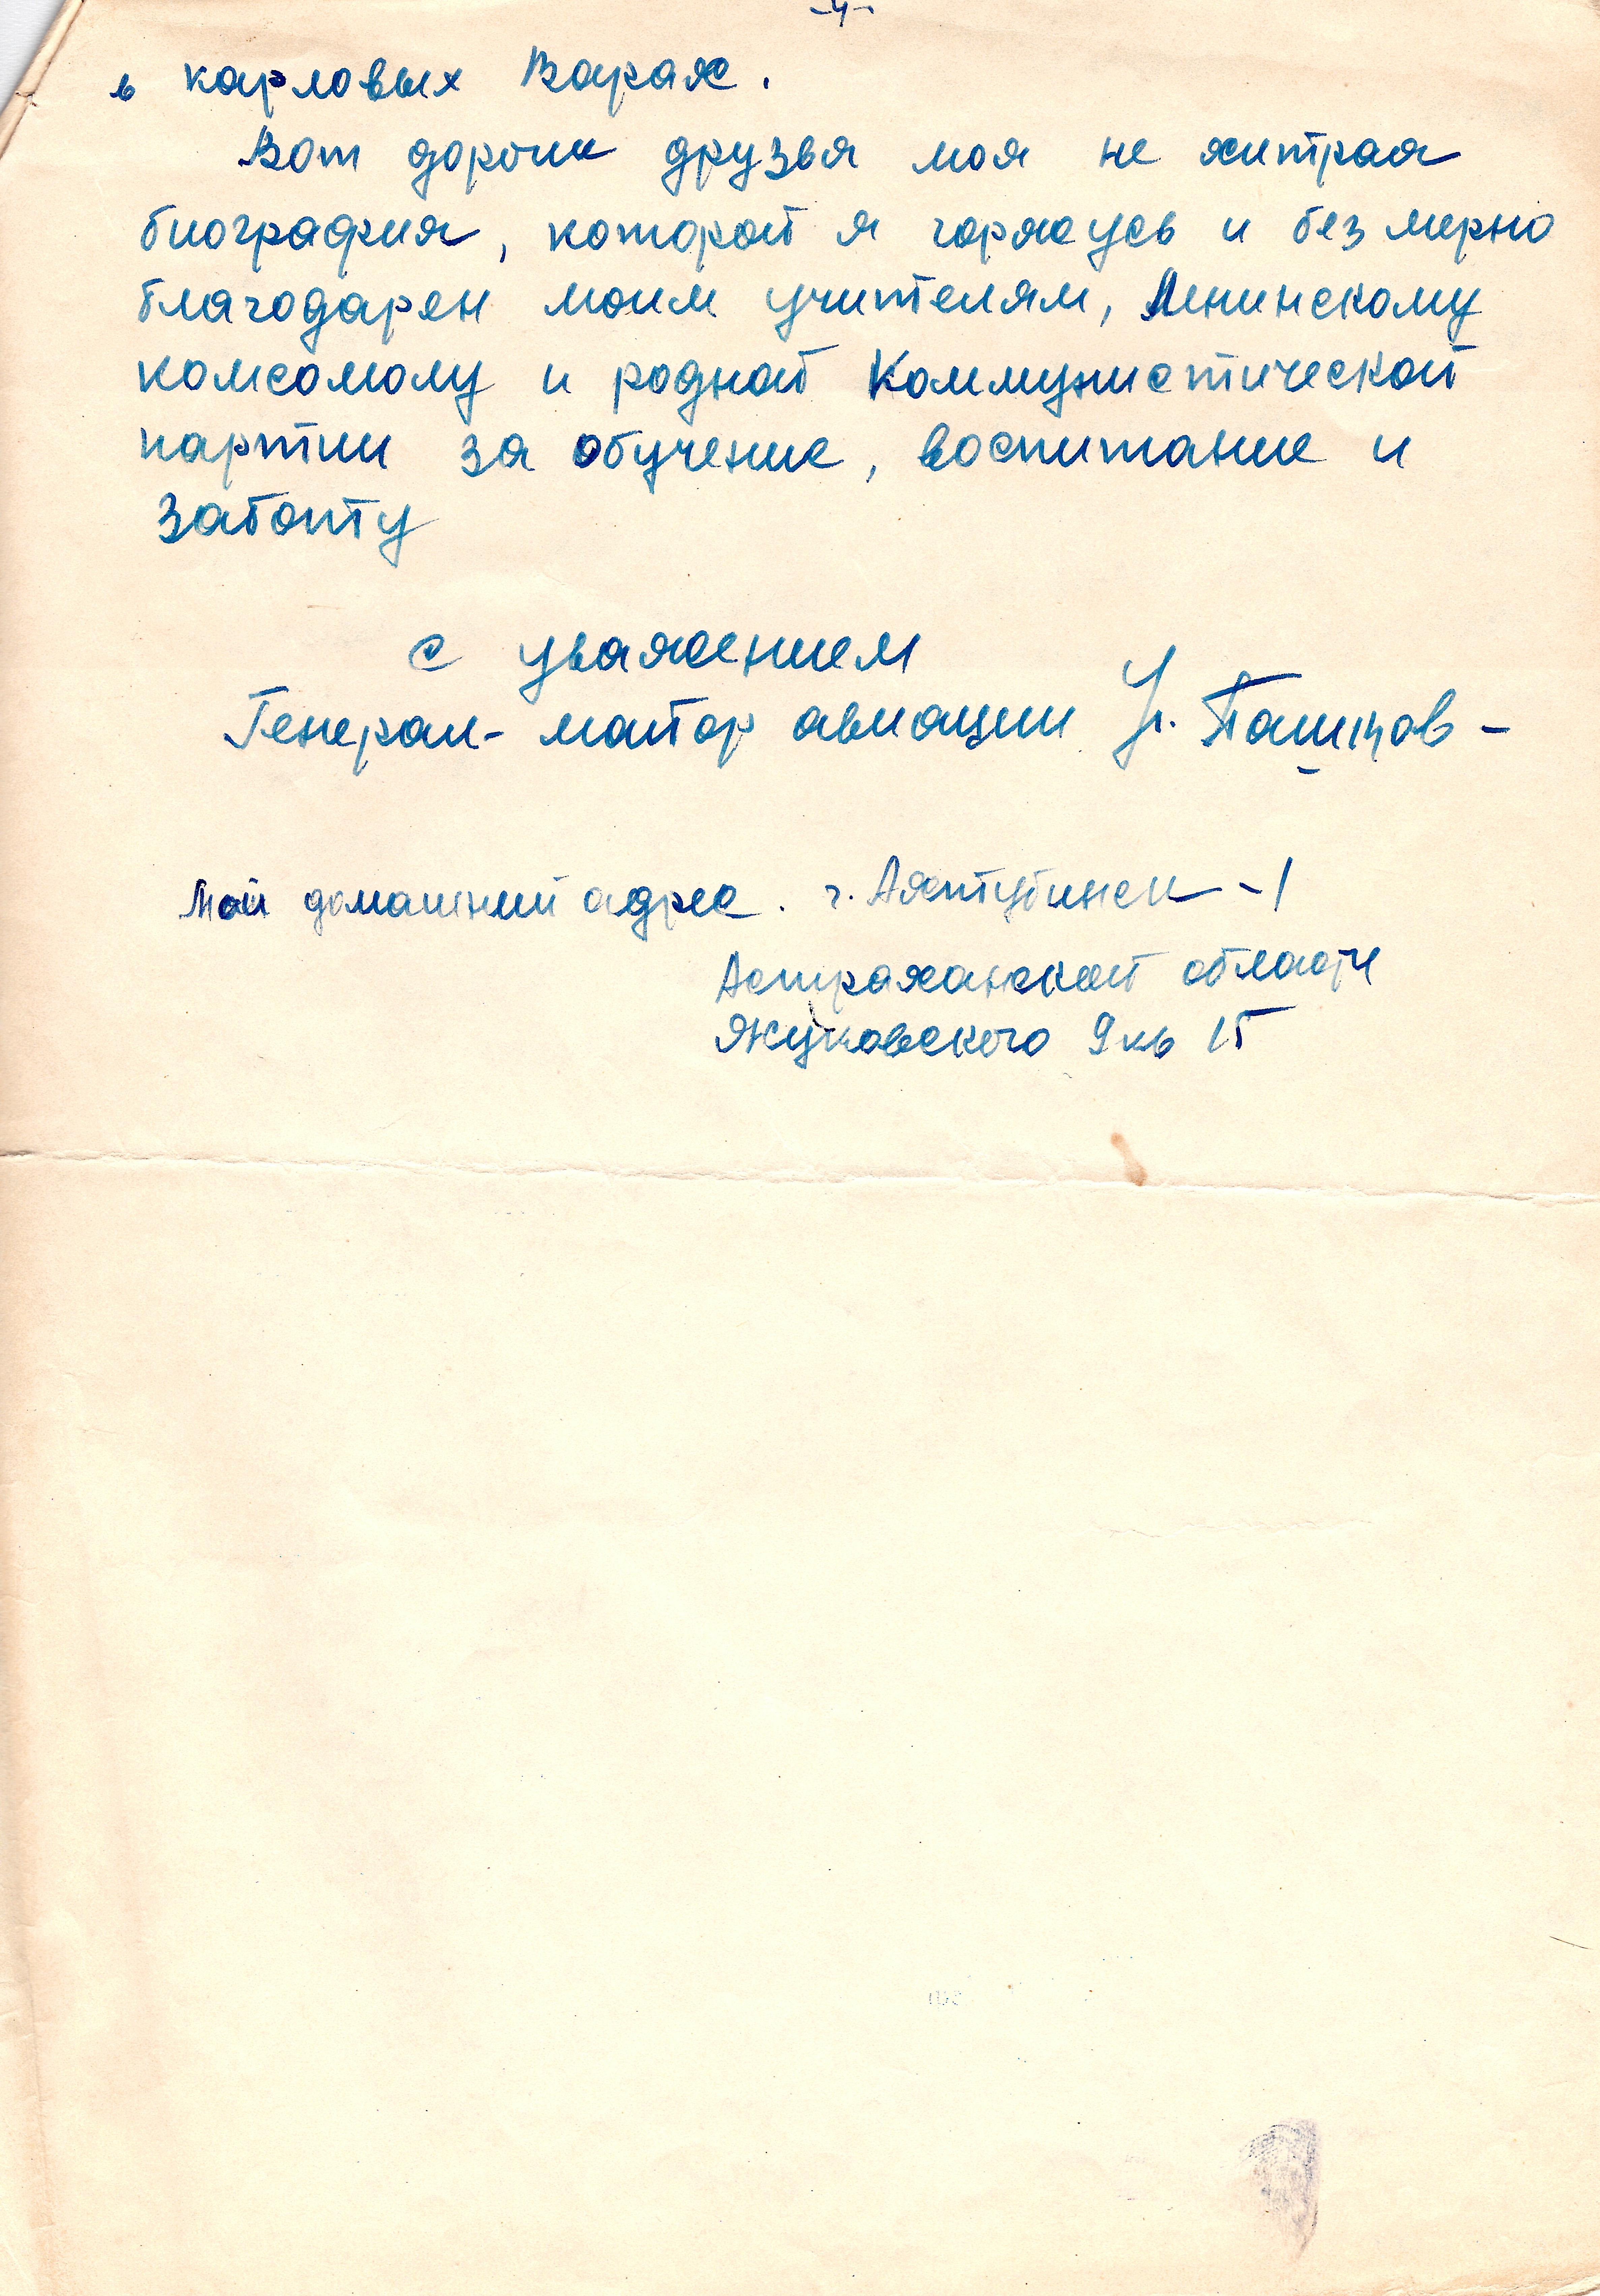 -4-
в карловых Варах.
Вот дорогие друзья моя не хитрая
биография, которой я горжусь и без мерно
благодарен моим учителям, Ленинскому
комсомолу и родной Коммунистической
партии за обучение, воспитание и
заботу
с уважением
Генерал-майор авиации
Мой домашний адрес. г. Ахтубинск-1
Астраханской области
Жуковского 9 кв 15